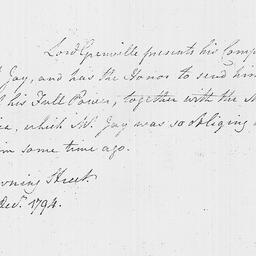 Lord Grenville presents his Comp
Jay, and has the Honor to send him
his Full Power, together with the
which Mr. Jay was so obliging
some time ago.
wning Street.
Decr. 1794.